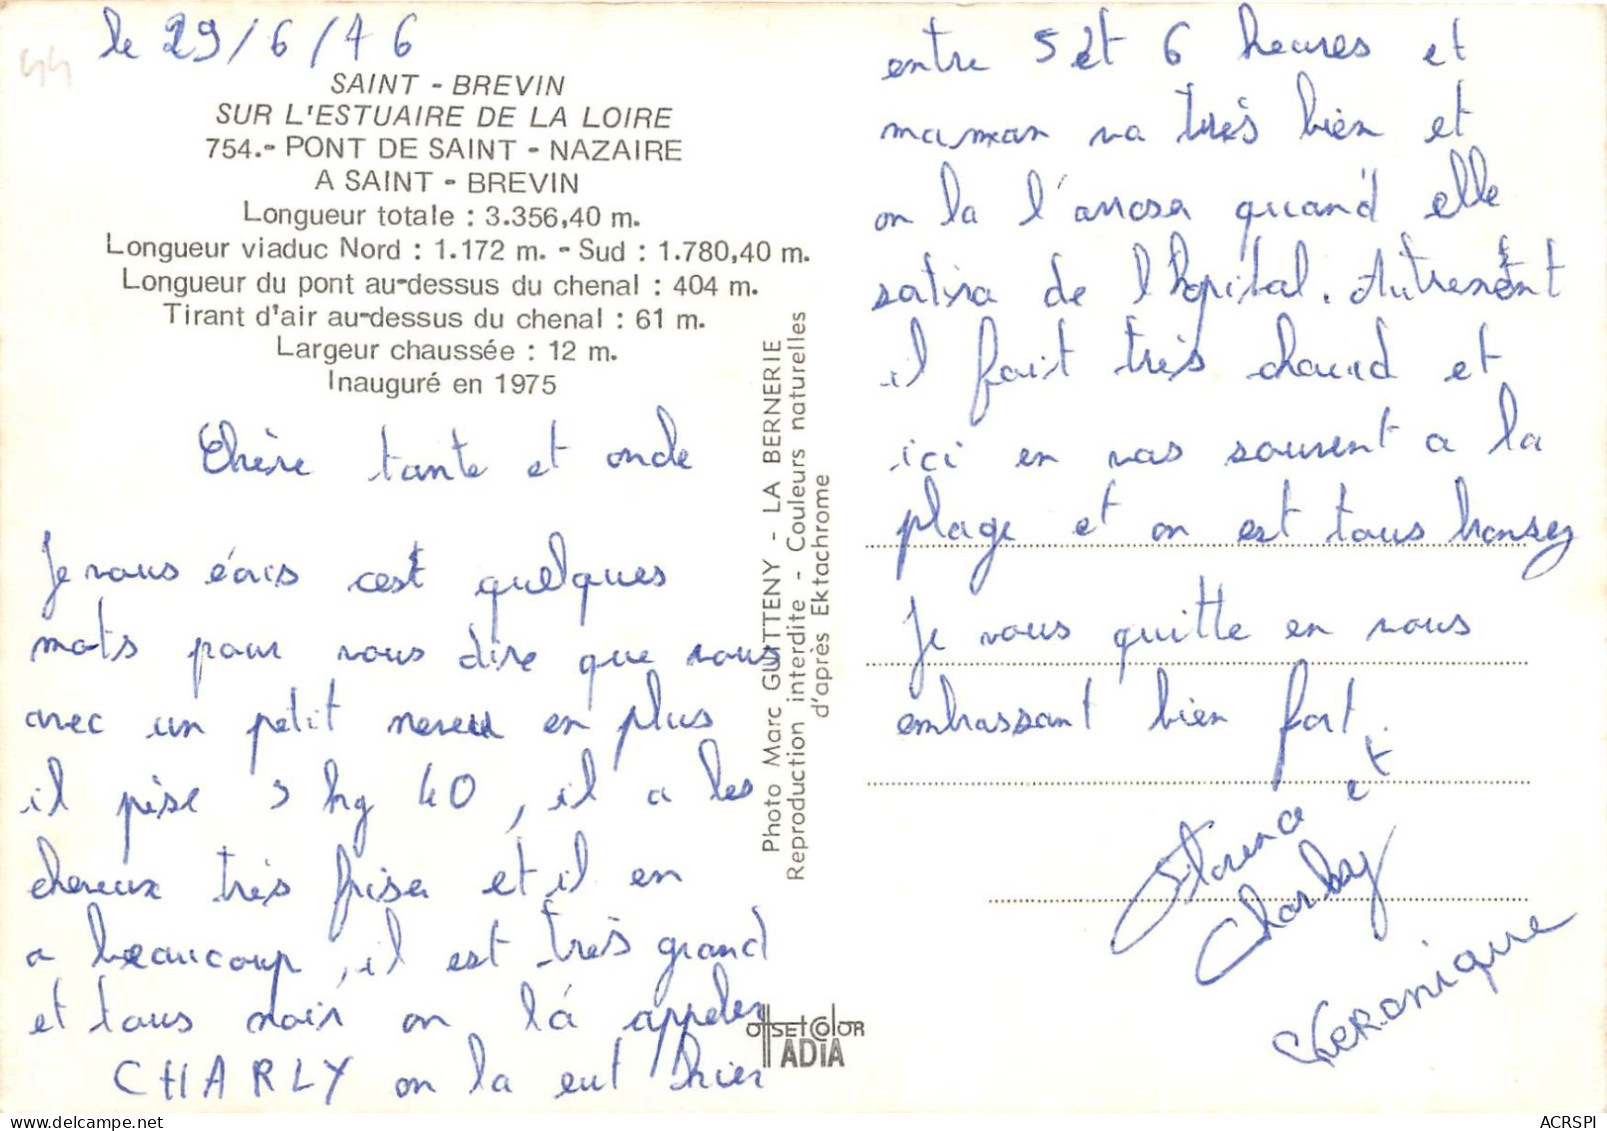 44
le 29/6/76
SAINT - BREVIN
SUR L'ESTUAIRE DE LA LOIRE
754.- PONT DE SAINT - NAZAIRE
A SAINT - BREVIN
Longueur totale : 3.356,40 m.
Longueur viaduc Nord : 1.172 m. - Sud : 1.780,40 m.
Longueur du pont au-dessus du chenal : 404 m.
Tirant d'air au-dessus du chenal : 61 m.
Largeur chaussée : 12 m.
Inauguré en 1975
Chère tante et oncle
Je vous écris cest quelques
mots pour vous dire que vous
avec un petit neveu en plus
il pèse 3 kg 40, il a les
cheveux très friser et il en
a beaucoup, il est très grand
et tous noir on là appeler
CHARLY on la eut hier
entre 5 et 6 heures et
maman va très bien et
on la l'arrosa quand elle
sortira de l'hopital. Autrement
il fait très chaud et
ici en vas souvent a la
plage et on est tous bronsez
Je vous quitte en vous
embrassant bien fort.
Florence et
Charly
Veronique
Photo Marc GUITTENY - LA BERNERIE
Reproduction interdite - Couleurs naturelles
d'après Ektachrome
OffSET COLOR
ADIA
ACRSPI